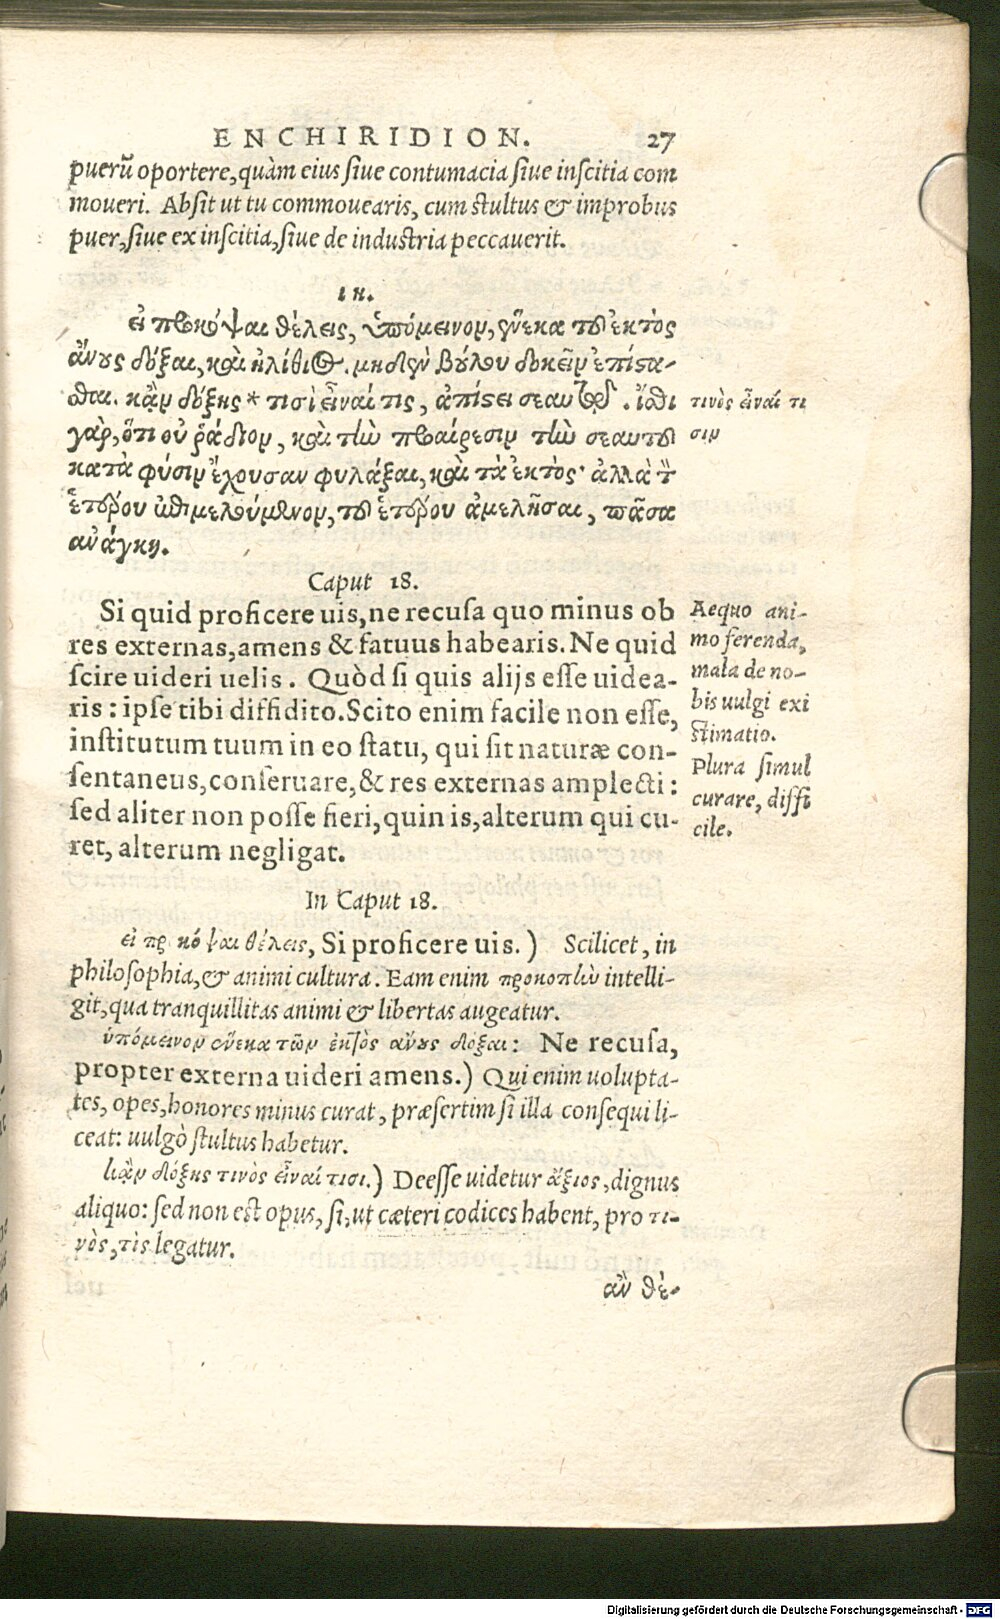 ENCHIRIDION. 27
puerū oportere, quàm eius siue contumacia siue inscitia com
moueri. Absit ut tu commouearis, cum stultus & improbus
puer, siue ex inscitia, siue de industria peccauerit.
ιη.
εἰ προκόψαι θέλεις, ὑπόμεινον, ἕνεκα τοῦ ἐκτὸς
ἄνους δόξαι, καὶ ἠλίθιος. μηδὲν βούλου δοκεῖν ἐπίστα-
σθαι. κἂν δόξῃς * τισὶ εἶναί τις, ἀπίστει σεαυτῷ. ἴσθι
γὰρ, ὅτι οὐ ῥᾴδιον, καὶ τὴν προαίρεσιν τὴν σεαυτοῦ
κατὰ φύσιν ἔχουσαν φυλάξαι, καὶ τὰ ἐκτός· ἀλλὰ τὸν
ἑτέρου ἐπιμελούμενον, τοῦ ἑτέρου ἀμελῆσαι, πᾶσα
ἀνάγκη.
τινὸς εἶναί τι
σιν
Caput 18.
Si quid proficere uis, ne recusa quo minus ob
res externas, amens & fatuus habearis. Ne quid
scire uideri uelis. Quòd si quis alijs esse uidea-
ris: ipse tibi diffidito. Scito enim facile non esse,
institutum tuum in eo statu, qui sit naturæ con-
sentaneus, conseruare, & res externas amplecti:
sed aliter non posse fieri, quin is, alterum qui cu-
ret, alterum negligat.
Aequo ani-
mo ferenda,
mala de no-
bis uulgi exi
stimatio.
Plura simul
curare, diffi
cile.
In Caput 18.
εἰ προκόψαι θέλεις, Si proficere uis.) Scilicet, in
philosophia, & animi cultura. Eam enim προκοπὴν intelli-
git, qua tranquillitas animi & libertas augeatur.
ὑπόμεινον ἕνεκα τῶν ἐκτὸς ἄνους δόξαι: Ne recusa,
propter externa uideri amens.) Qui enim uolupta-
tes, opes, honores minus curat, præsertim si illa consequi li-
ceat: uulgò stultus habetur.
κἂν δόξῃς τινὸς εἶναί τισι.) Deesse uidetur ἄξιος, dignus
aliquo: sed non est opus, si, ut cæteri codices habent, pro τι-
νὸς, τὶς legatur.
ἂν θέ-
Digitalisierung gefördert durch die Deutsche Forschungsgemeinschaft - DFG